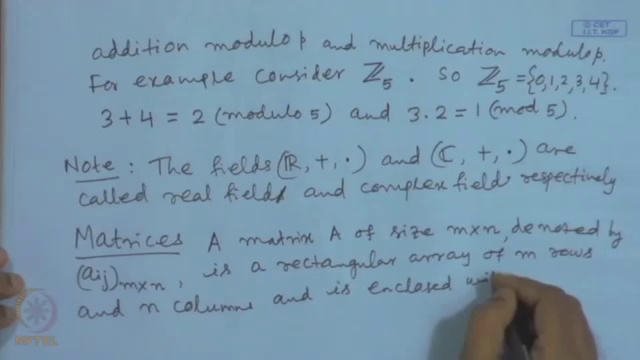 © CET
I.I.T. KGP
addition modulo p and multiplication modulo p.
For example consider ℤ₅ . So ℤ₅ = {0,1,2,3,4}.
3 + 4 = 2 (modulo 5) and 3 . 2 = 1 (mod 5).
Note : The fields (ℝ, +, ·) and (ℂ, +, ·) are
called real field and complex field respectively
Matrices A matrix A of size m×n, denoted by
(aij)m×n , is a rectangular array of m rows
and n columns and is enclosed
NPTEL